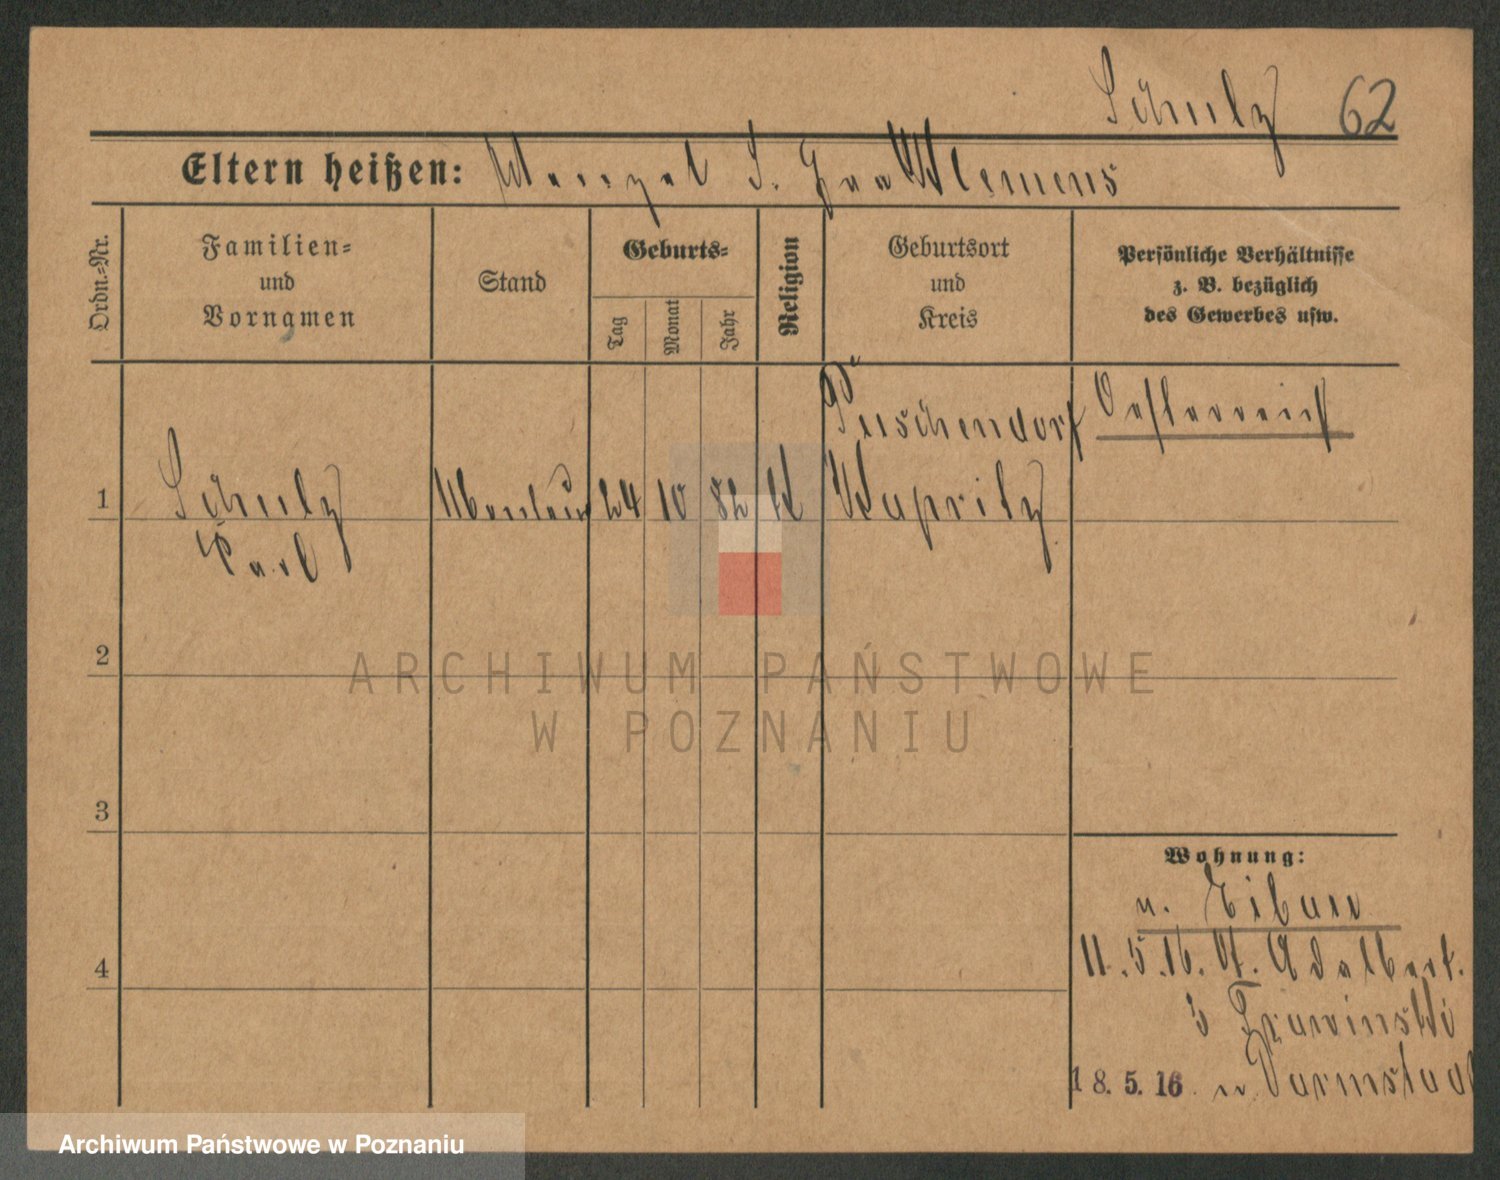 Schulz 62
Eltern heißen: Wenzel S. Klemens
Ordn.-Nr.
Familien-
und
Vornamen
Stand
Geburts-
Tag
Monat
Jahr
Religion
Geburtsort
und
Kreis
Persönliche Verhältnisse
z. B. bezüglich
des Gewerbes usw.
Puschendorf Oesterreich
1 Schulz Monteur 24 10 82 K
Karl
2
ARCHIWUM PAŃSTWOWE
W POZNANIU
3
Wohnung:
4
11.5.16. Adalbert.
3
18.5.16 n Darmstadt
Archiwum Państwowe w Poznaniu